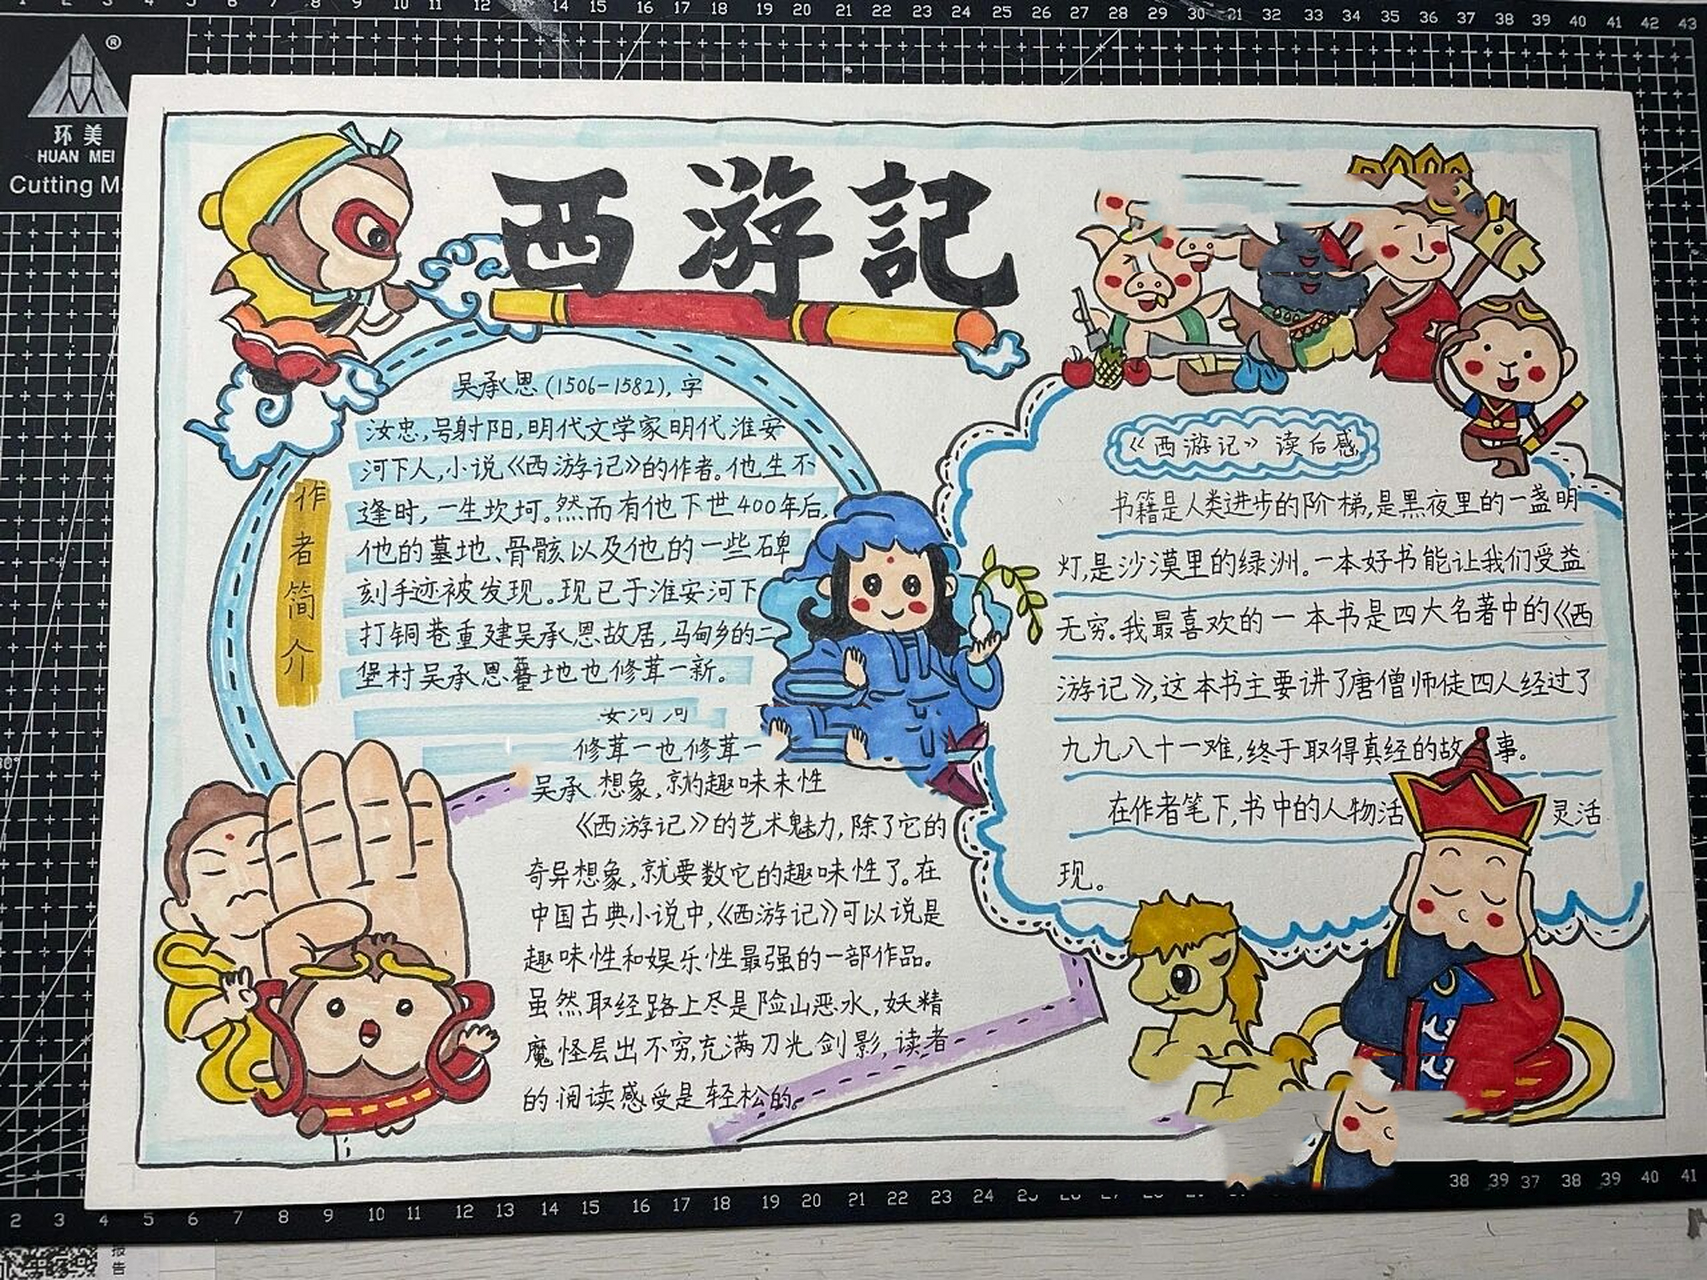 环美
HUAN MEI
Cutting M
西游記
吴承恩(1506-1582),字
汝忠,号射阳,明代文学家明代淮安
河下人,小说《西游记》的作者。他生不
逢时,一生坎坷。然而有他下世400年后,
他的墓地、骨骸以及他的一些碑
刻手迹被发现。现已于淮安河下
打铜巷重建吴承恩故居,马甸乡的二
堡村吴承恩墓地也修茸一新。
作者简介
修茸一也修茸一
吴承 想象,就的趣味未性
《西游记》的艺术魅力,除了它的
奇异想象,就要数它的趣味性了。在
中国古典小说中,《西游记》可以说是
趣味性和娱乐性最强的一部作品。
虽然取经路上尽是险山恶水,妖精
魔怪层出不穷,充满刀光剑影,读者
的阅读感受是轻松的。
《西游记》读后感
书籍是人类进步的阶梯,是黑夜里的一盏明
灯,是沙漠里的绿洲。一本好书能让我们受益
无穷。我最喜欢的一本书是四大名著中的《西
游记》,这本书主要讲了唐僧师徒四人经过了
九九八十一难,终于取得真经的故事。
在作者笔下,书中的人物活 灵活
现。
报告